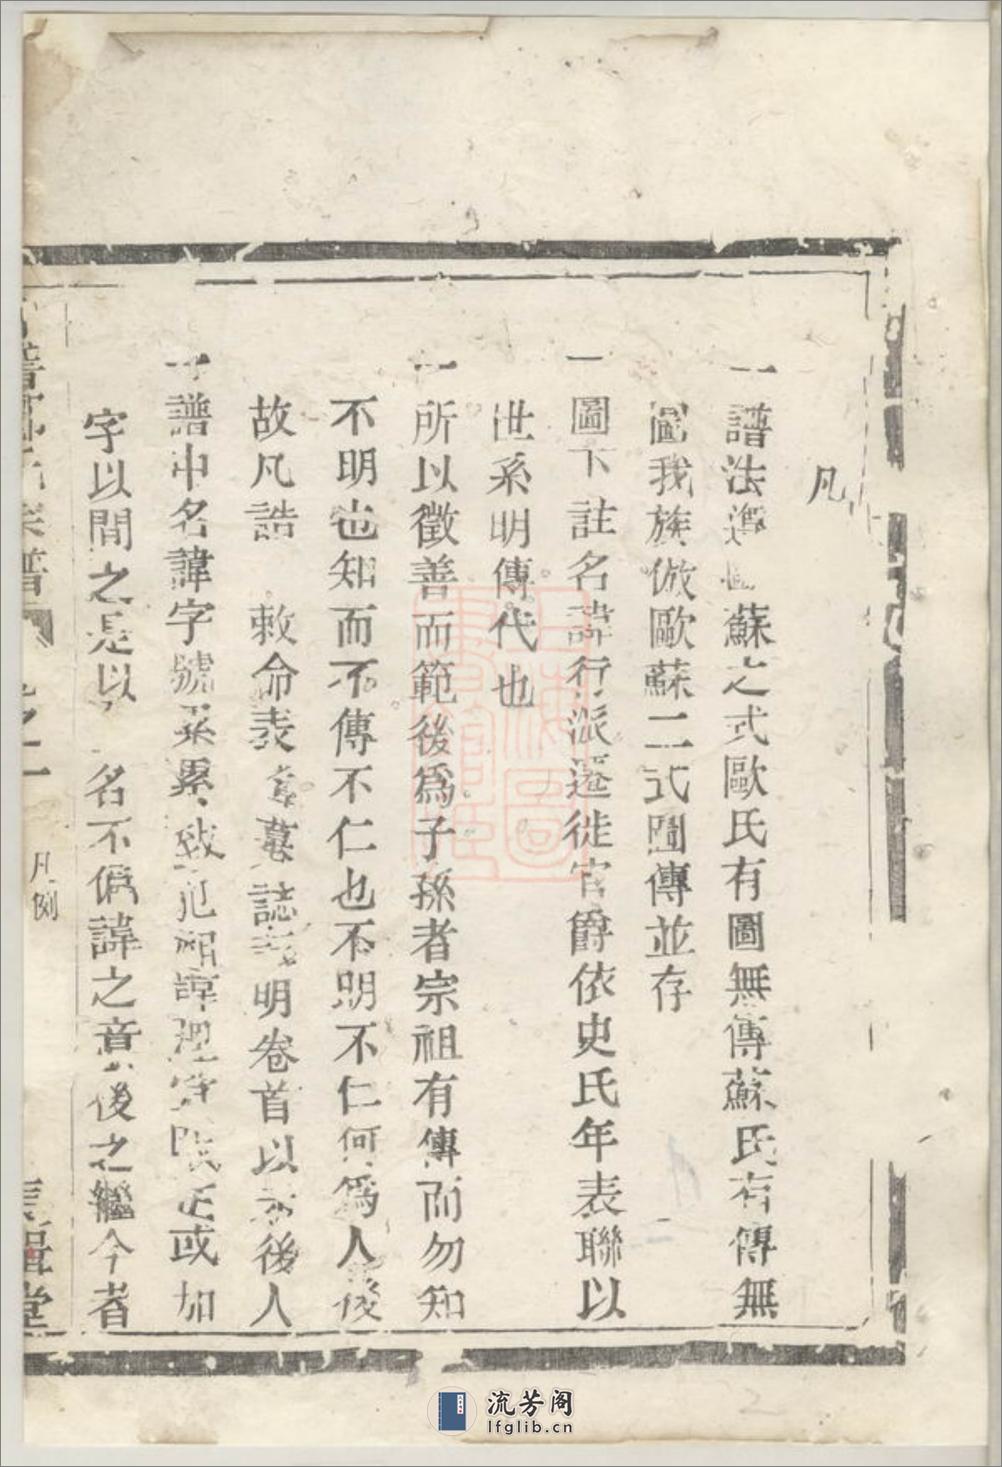 凡
一譜法遵歐蘇之式歐氏有圖無傳蘇氏有傳無
圖我族倣歐蘇二式圖傳並存
一圖下註名諱行派遷徙官爵依史氏年表聯以
世系明傳代也
一所以徵善而範後爲子孫者宗祖有傳而勿知
不明也知而不傳不仁也不明不仁何爲人後
故凡誥 敕命表章墓誌 明卷首以示後人
一譜中名諱字號累累致犯祖諱 正或加
字以間之是以 名不偏諱之意後之繼今者
宗譜 卷之一 凡例 堂
上海圖書館藏
流芳阁
lfglib.cn